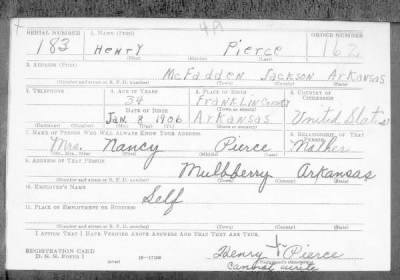 4A
SERIAL NUMBER 1. NAME (Print) ORDER NUMBER
183 Henry Pierce 162
(First) (Middle) (Last)
2. ADDRESS (Print)
McFadden Jackson Arkansas
(Number and street or R. F. D. number) (Town) (County) (State)
3. TELEPHONE 4. AGE IN YEARS 5. PLACE OF BIRTH 6. COUNTRY OF CITIZENSHIP
34 Franklin County
DATE OF BIRTH (Town or county)
Jan 8 1906 Arkansas United States
(Exchange) (Number) (Mo.) (Day) (Yr.) (State or country)
7. NAME OF PERSON WHO WILL ALWAYS KNOW YOUR ADDRESS 8. RELATIONSHIP OF THAT PERSON
Mrs. Nancy Pierce Mother
(Mr., Mrs., Miss) (First) (Middle) (Last)
9. ADDRESS OF THAT PERSON
Mulbberry Arkansas
(Number and street or R. F. D. number) (Town) (County) (State)
10. EMPLOYER'S NAME
Self
11. PLACE OF EMPLOYMENT OR BUSINESS
(Number and street or R. F. D. number) (Town) (County) (State)
I AFFIRM THAT I HAVE VERIFIED ABOVE ANSWERS AND THAT THEY ARE TRUE.
REGISTRATION CARD
D. S. S. FORM 1
(over) 16—17105
Henry + Pierce
Cannot write